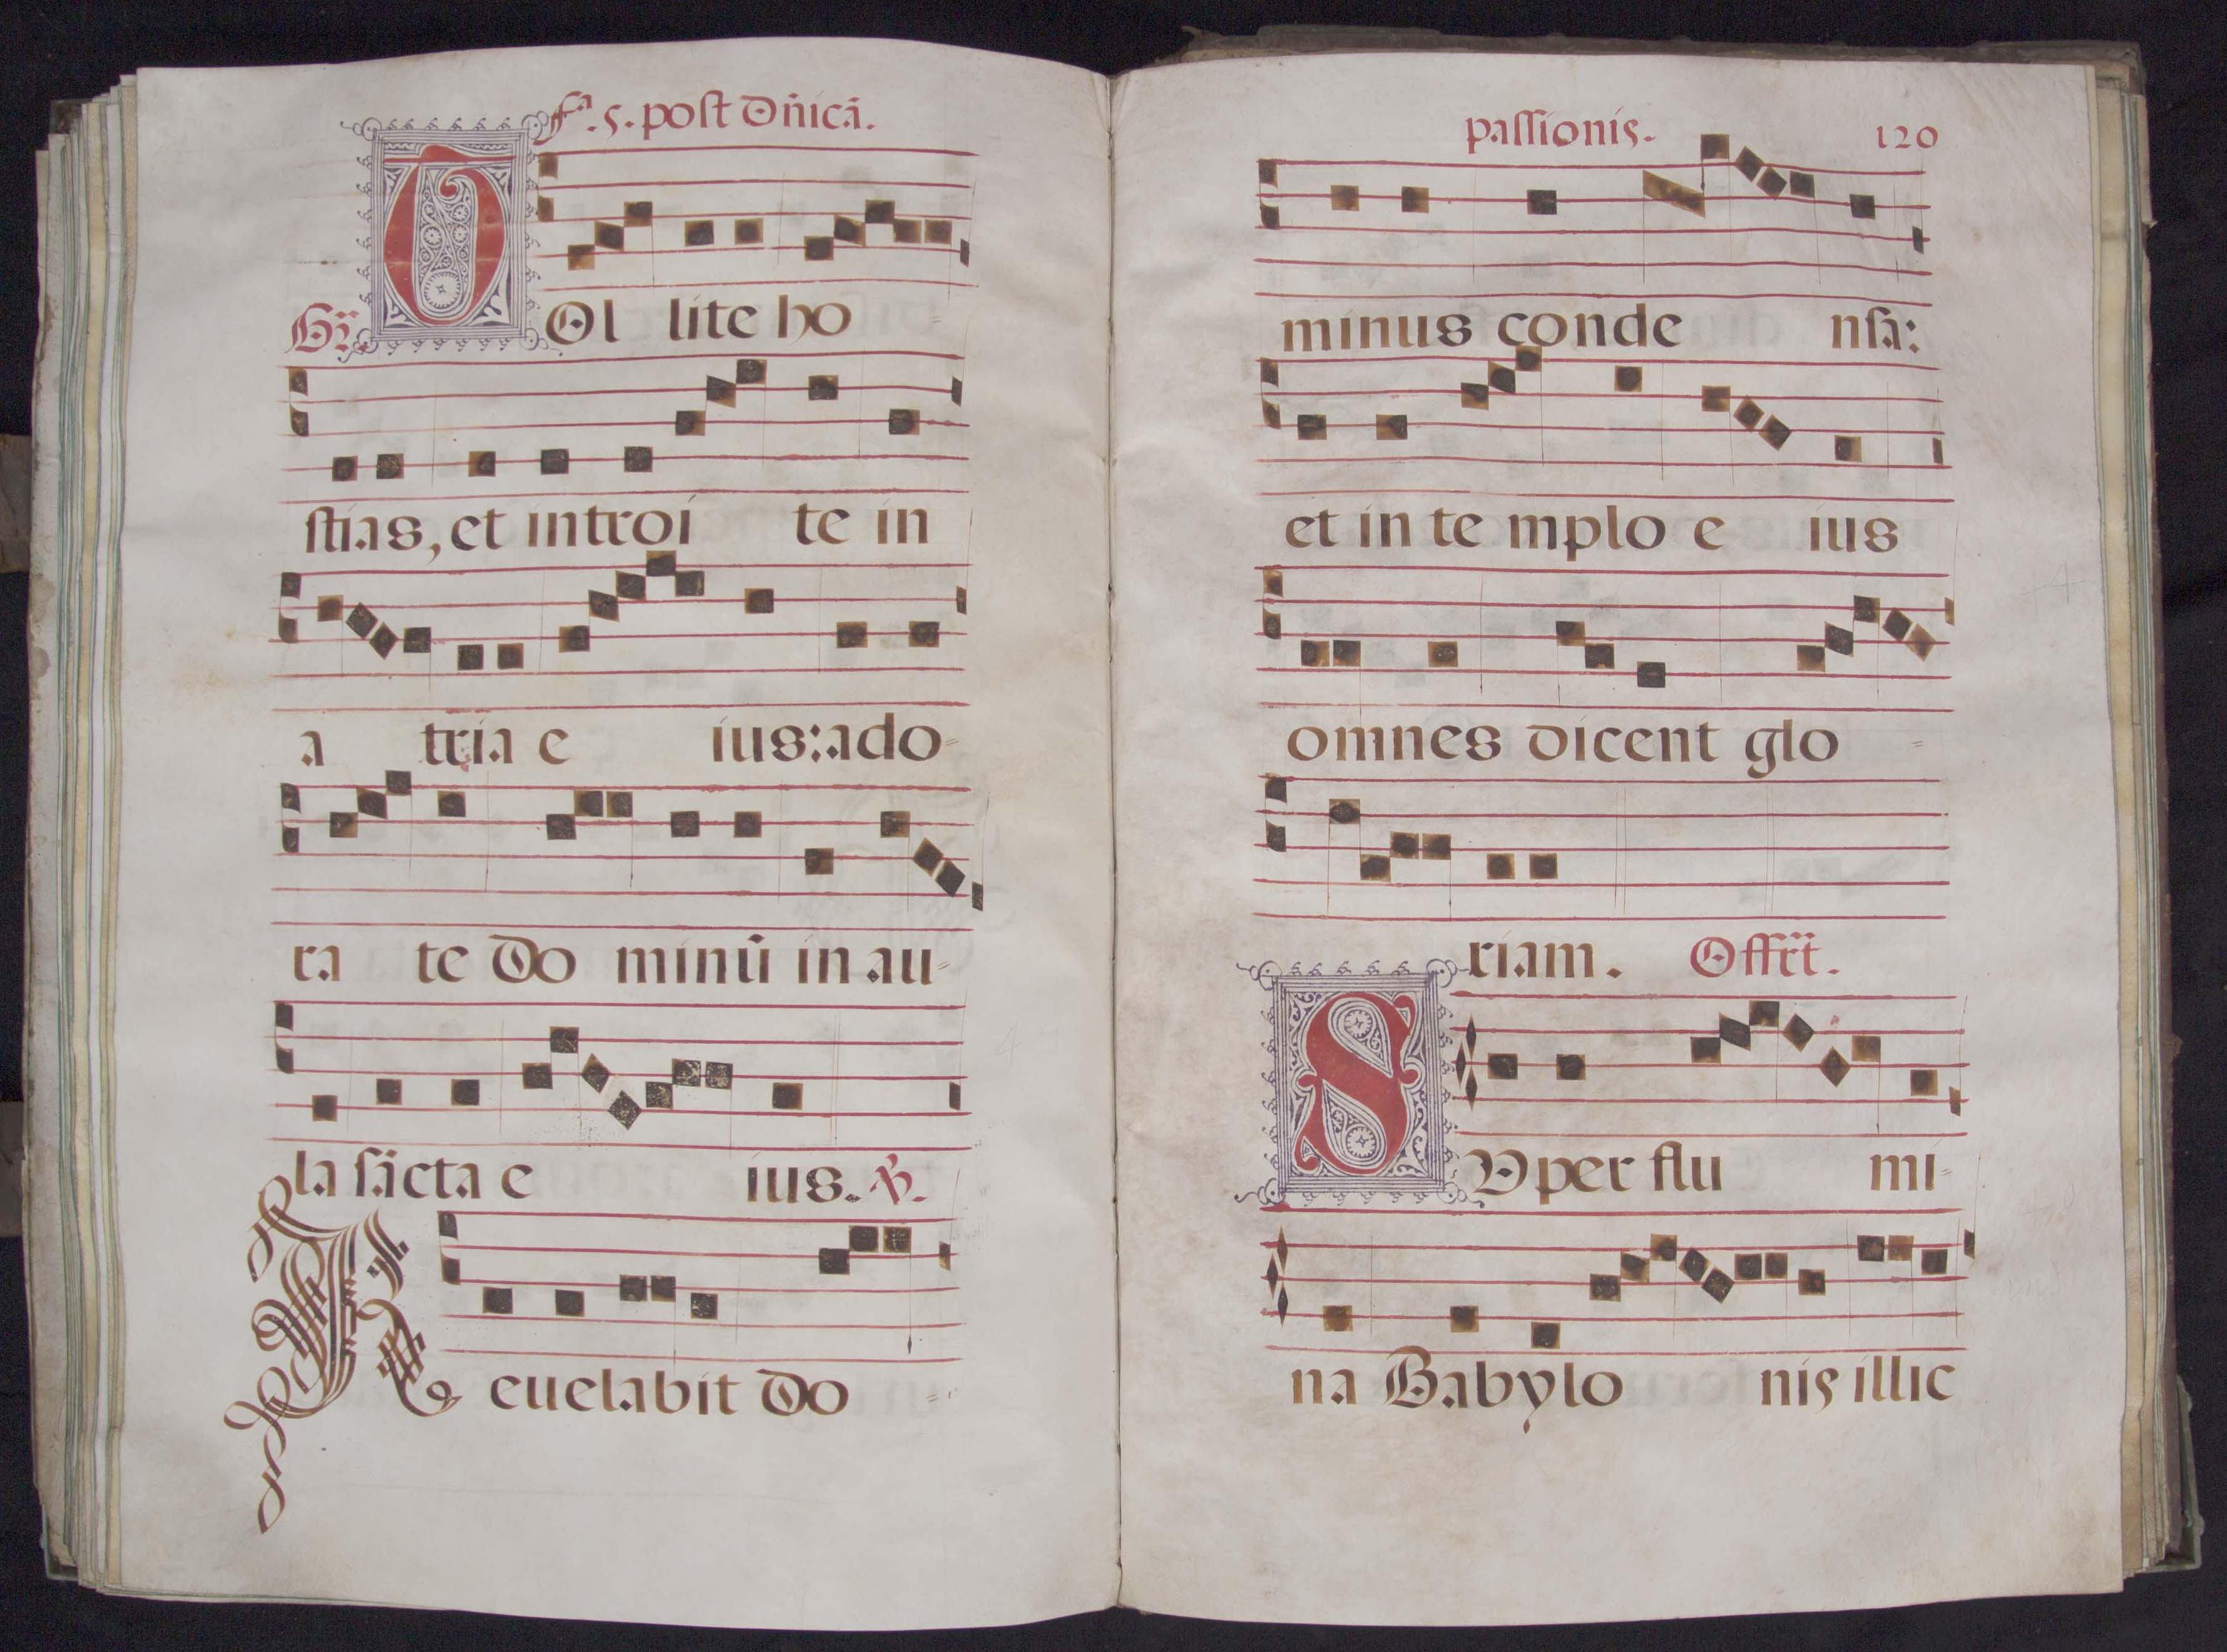 fª. 5. post Dñicã.
Gr̃.
TOl lite ho
stias, et introi te in
a tria e ius: ado
ra te Do minũ in au
la sãcta e ius. ℣.
Reuelabit Do
passionis. 120
minus conde nsa:
et in te mplo e ius
omnes dicent glo
riam. Offr̃t.
SVper flu mi
na Babylo nis illic